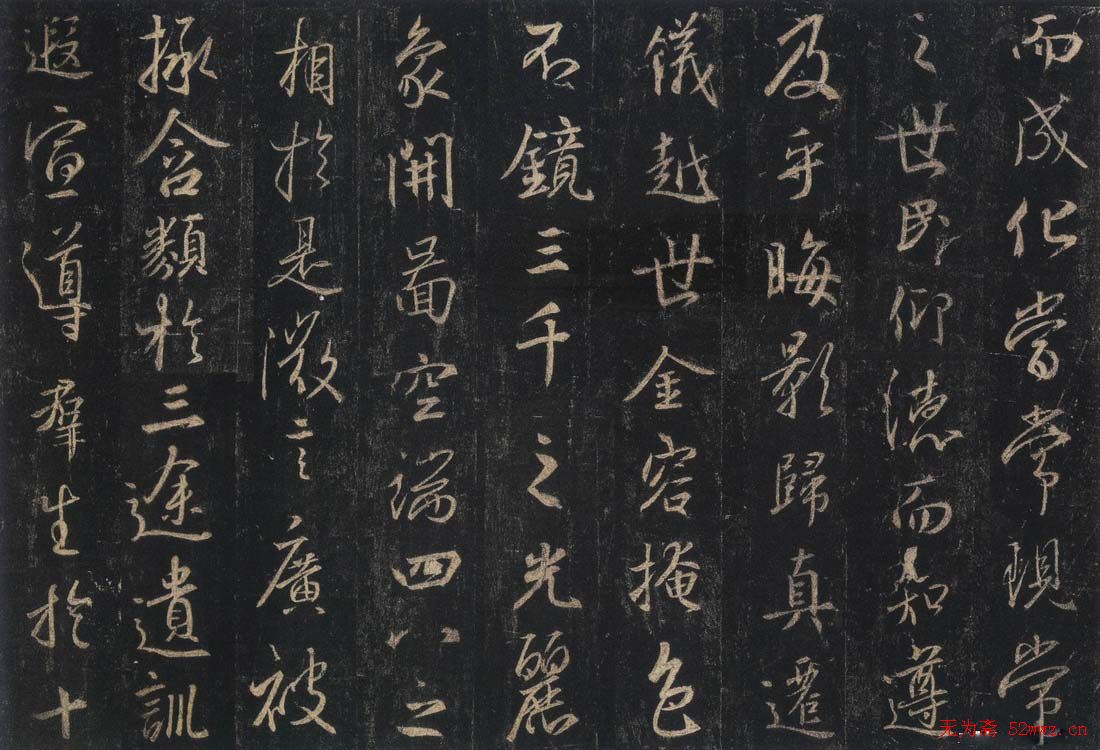 而成化當常現常
之世民仰德而知遵
及乎晦影歸真遷
儀越世金容掩色
不鏡三千之光麗
象開圖空端四八之
相於是微言廣被
拯含類於三途遺訓
遐宣導羣生於十
无为斋 52wwz.cn